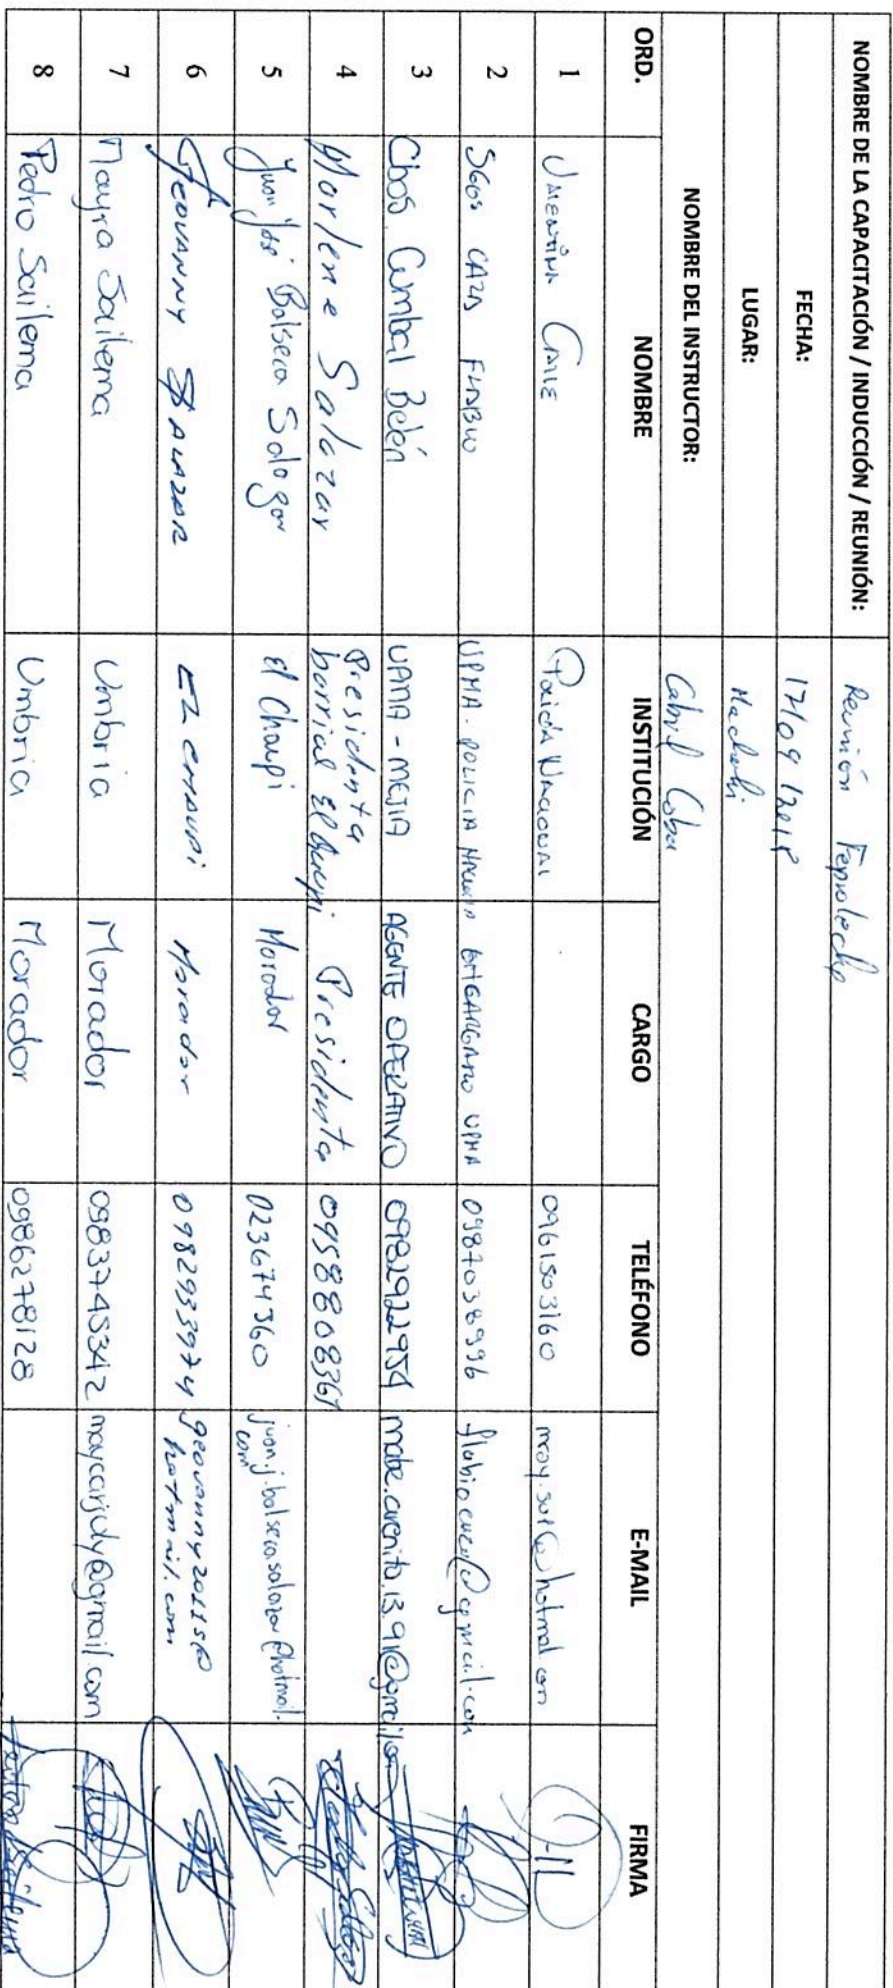 NOMBRE DE LA CAPACITACIÓN / INDUCCIÓN / REUNIÓN: Reunión
FECHA: 17/09/2018
LUGAR: Machachi
NOMBRE DEL INSTRUCTOR: Gabriel Coba
ORD. NOMBRE INSTITUCIÓN CARGO TELÉFONO E-MAIL FIRMA
1 Calle Policía Nacional 0961503160
2 Sgos Caza Flabio UPMA - Policia Encargado UPMA 0987038996
3 Cbos. Cumbal Belén UPMA - MEJIA AGENTE OPERATIVO 0982922954
4 Marlene Salazar Presidenta barrial El Chaupi Presidenta
5 Juan José Balseca Salazar El Chaupi Morador 023674360 juan.j.balseca.salazar@hotmail.com
6 Geovanny Salazar El Chaupi Morador 0982933974 geovanny2011s@hotmail.com
7 Mayra Sailema Umbria Morador 0983745342 maycarjuly@gmail.com
8 Pedro Sailema Umbria Morador 0986278128